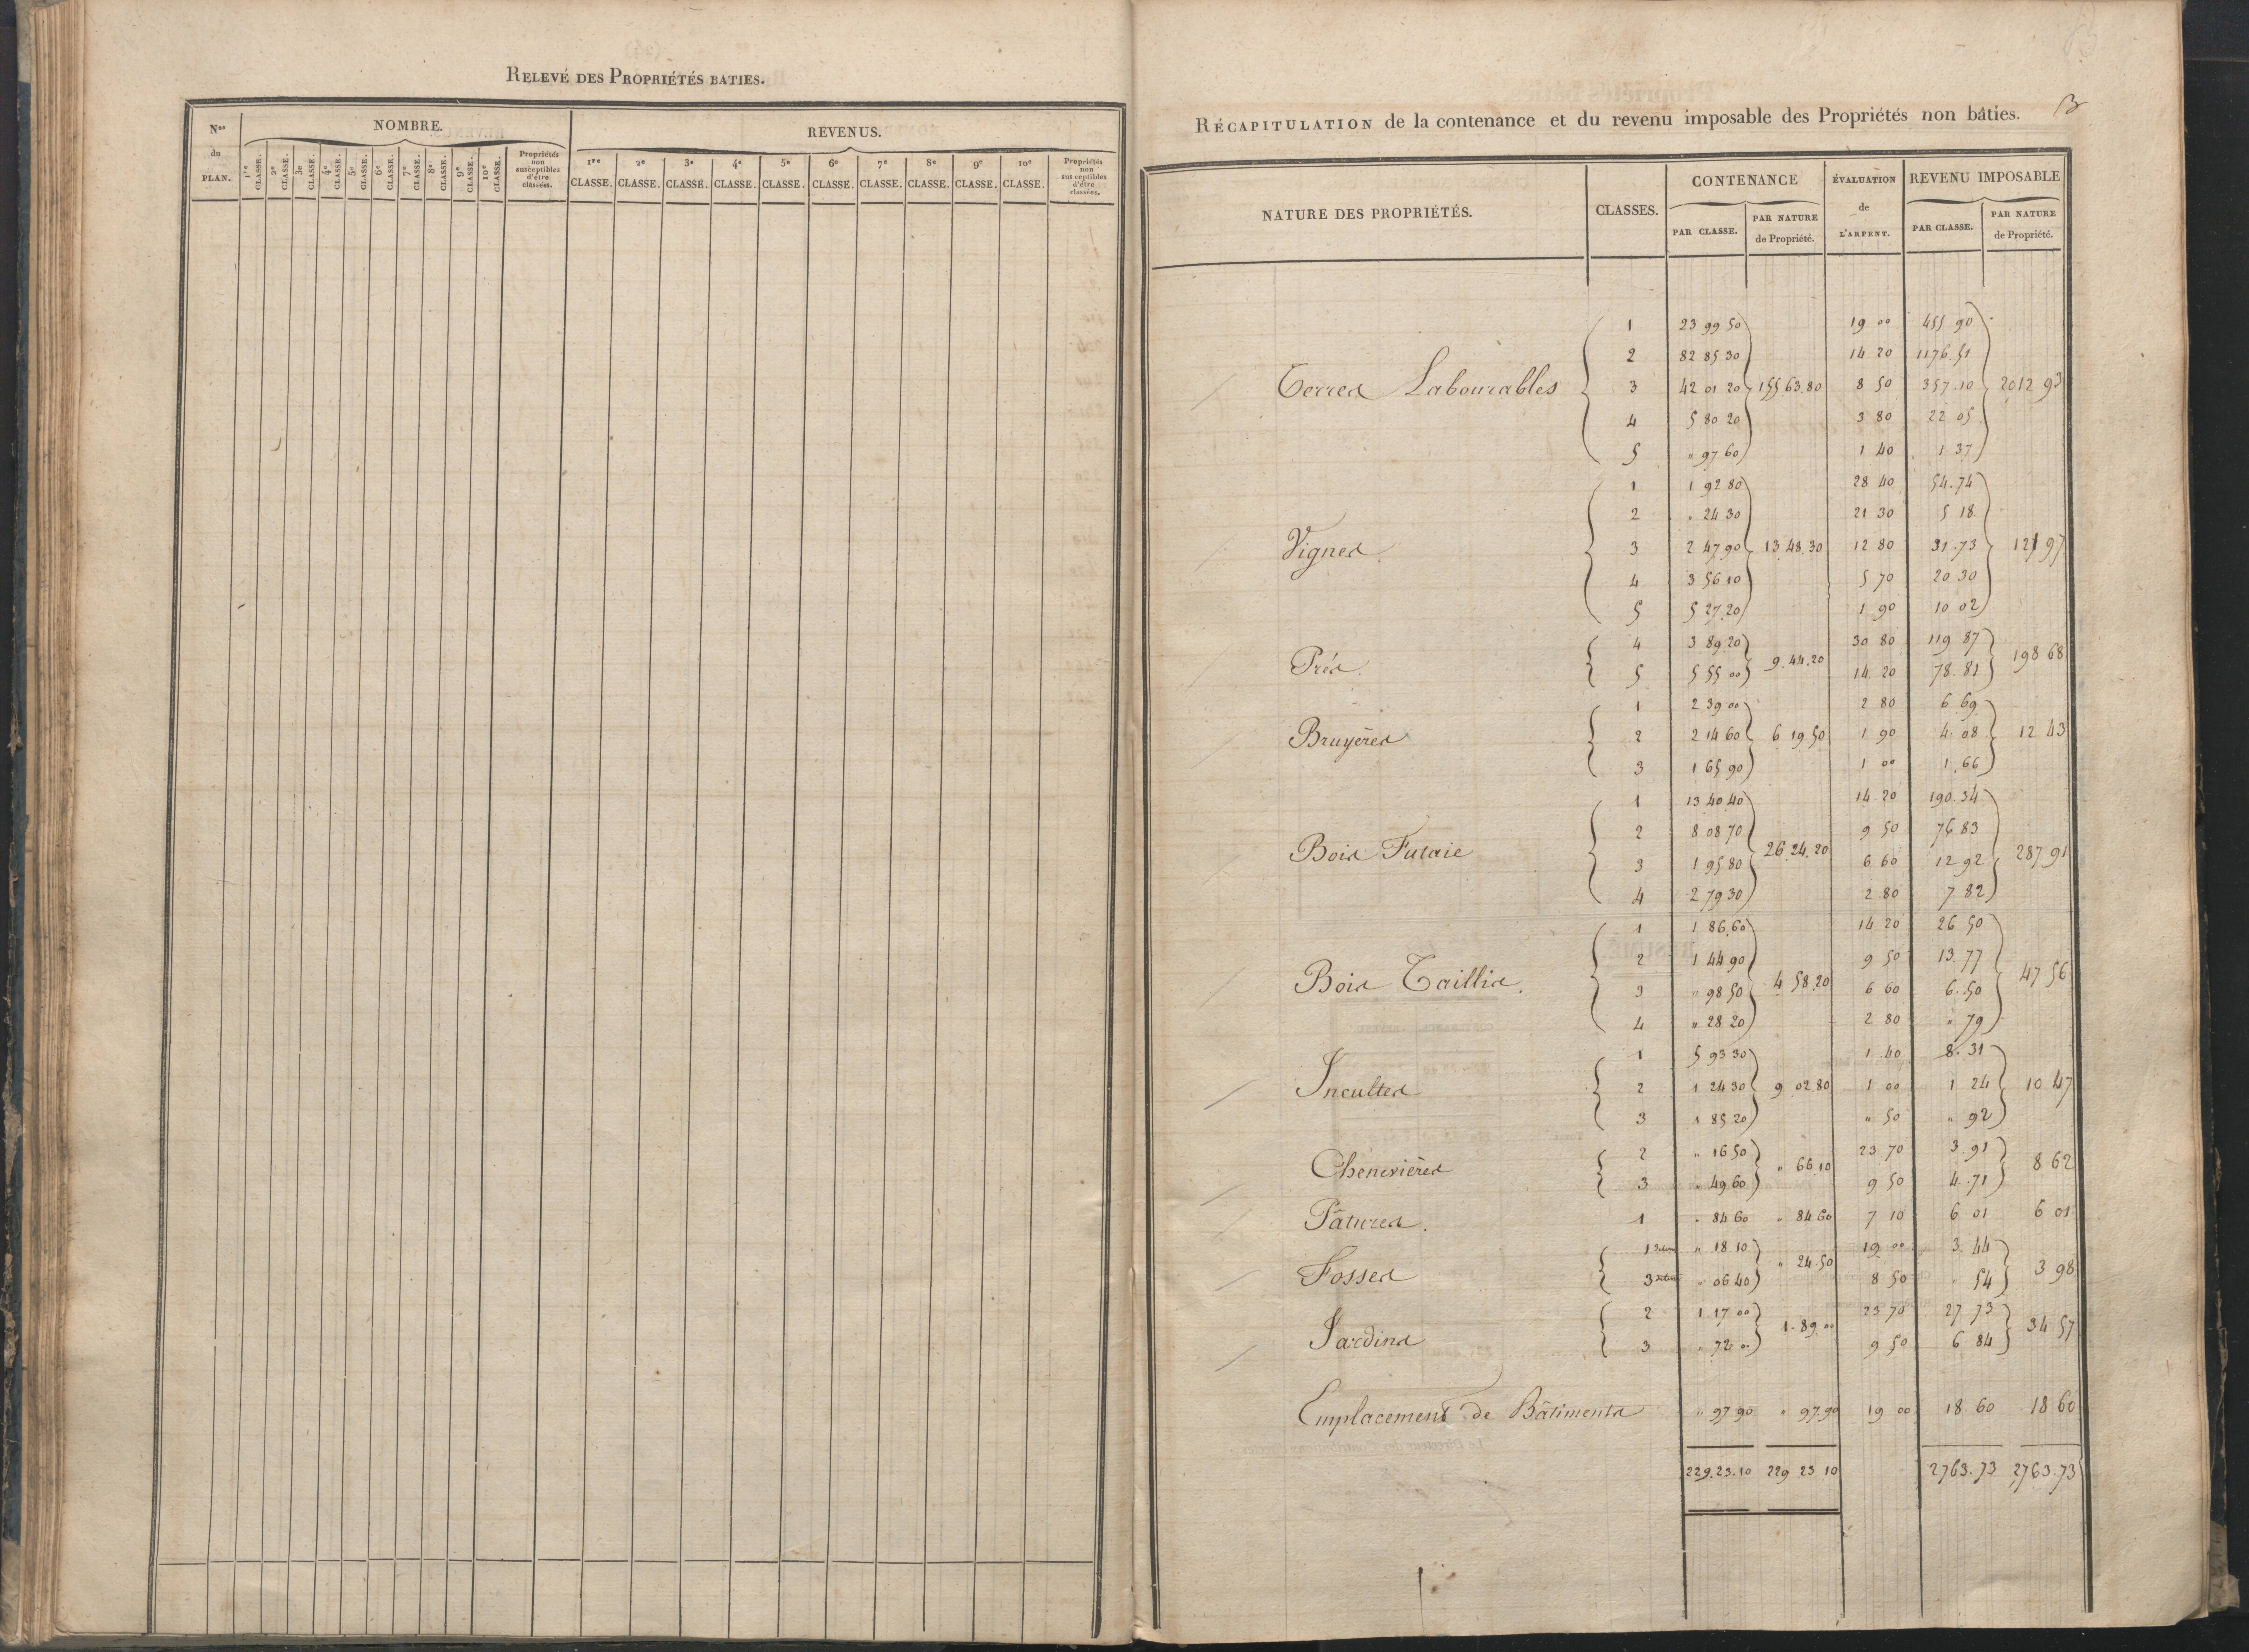 RELEVÉ DES PROPRIÉTÉS BATIES.
Nos du PLAN. NOMBRE. REVENUS.
1re CLASSE. 2e CLASSE. 3e CLASSE. 4e CLASSE. 5e CLASSE. 6e CLASSE. 7e CLASSE. 8e CLASSE. 9e CLASSE. 10e CLASSE. Propriétés non susceptibles d'être classées.
1re CLASSE. 2e CLASSE. 3e CLASSE. 4e CLASSE. 5e CLASSE. 6e CLASSE. 7e CLASSE. 8e CLASSE. 9e CLASSE. 10e CLASSE. Propriétés non susceptibles d'être classées.
RÉCAPITULATION de la contenance et du revenu imposable des Propriétés non bâties.
NATURE DES PROPRIÉTÉS. CLASSES. CONTENANCE ÉVALUATION de L'ARPENT. REVENU IMPOSABLE
PAR CLASSE. PAR NATURE de Propriété. PAR CLASSE. PAR NATURE de Propriété.
1 23 99 50 19 00 455 90
2 82 85 30 14 20 1176.51
Terres Labourables 3 42 01 20 155 63.80 8 50 357.10 2012 93
4 5 80 20 3 80 22 05
5 " 97 60 1 40 1 37
1 1 92 80 28 40 54.74
2 " 24 30 21 30 5 18
Vignes. 3 2 47 90 13.48.30 12 80 31.73 121 97
4 3 56 10 5 70 20 30
5 5 27.20 1 90 10 02
4 3 89 20 30 80 119 87
Prés. 9.44.20 198 68
5 5 55 00 14 20 78.81
1 2 39 00 2 80 6 69
Bruyères 2 2 14 60 6 19.50 1 90 4.08 12 43
3 1 65 90 1 00 1.66
1 13 40.40 14.20 190.34
2 8 08 70 9 50 76 83
Bois Futaie 26.24.20 287 91
3 1 95 80 6 60 12 92
4 2 79 30 2 80 7 82
1 1 86.60 14 20 26 50
2 1 44 90 9 50 13.77
Bois Taillis. 4 58.20 47 56
3 " 98 50 6 60 6.50
4 " 28.20 2 80 " 79
1 5 93 30 1 40 8.31
Incultes 2 1 24 30 9 02 80 1 00 1 24 10 47
3 1 85 20 " 50 " 92
2 " 16 50 23 70 3.91
Chenevières " 66.10 8 62
3 " 49 60 9 50 4.71
Pâtures. 1 " 84 60 " 84 60 7 10 6 01 6 01
1 " 18 10 19 00 3.44
Fosses " 24.50 3 98
3 " 06 40 8 50 " 54
2 1.17 00 23 70 27 73
Jardins 1.89.00 34 57
3 " 72 00 9 50 6 84
Emplacement de Bâtiments " 97 90 " 97.90 19 00 18 60 18 60
229.23.10 229 23 10 2763.73 2763.73